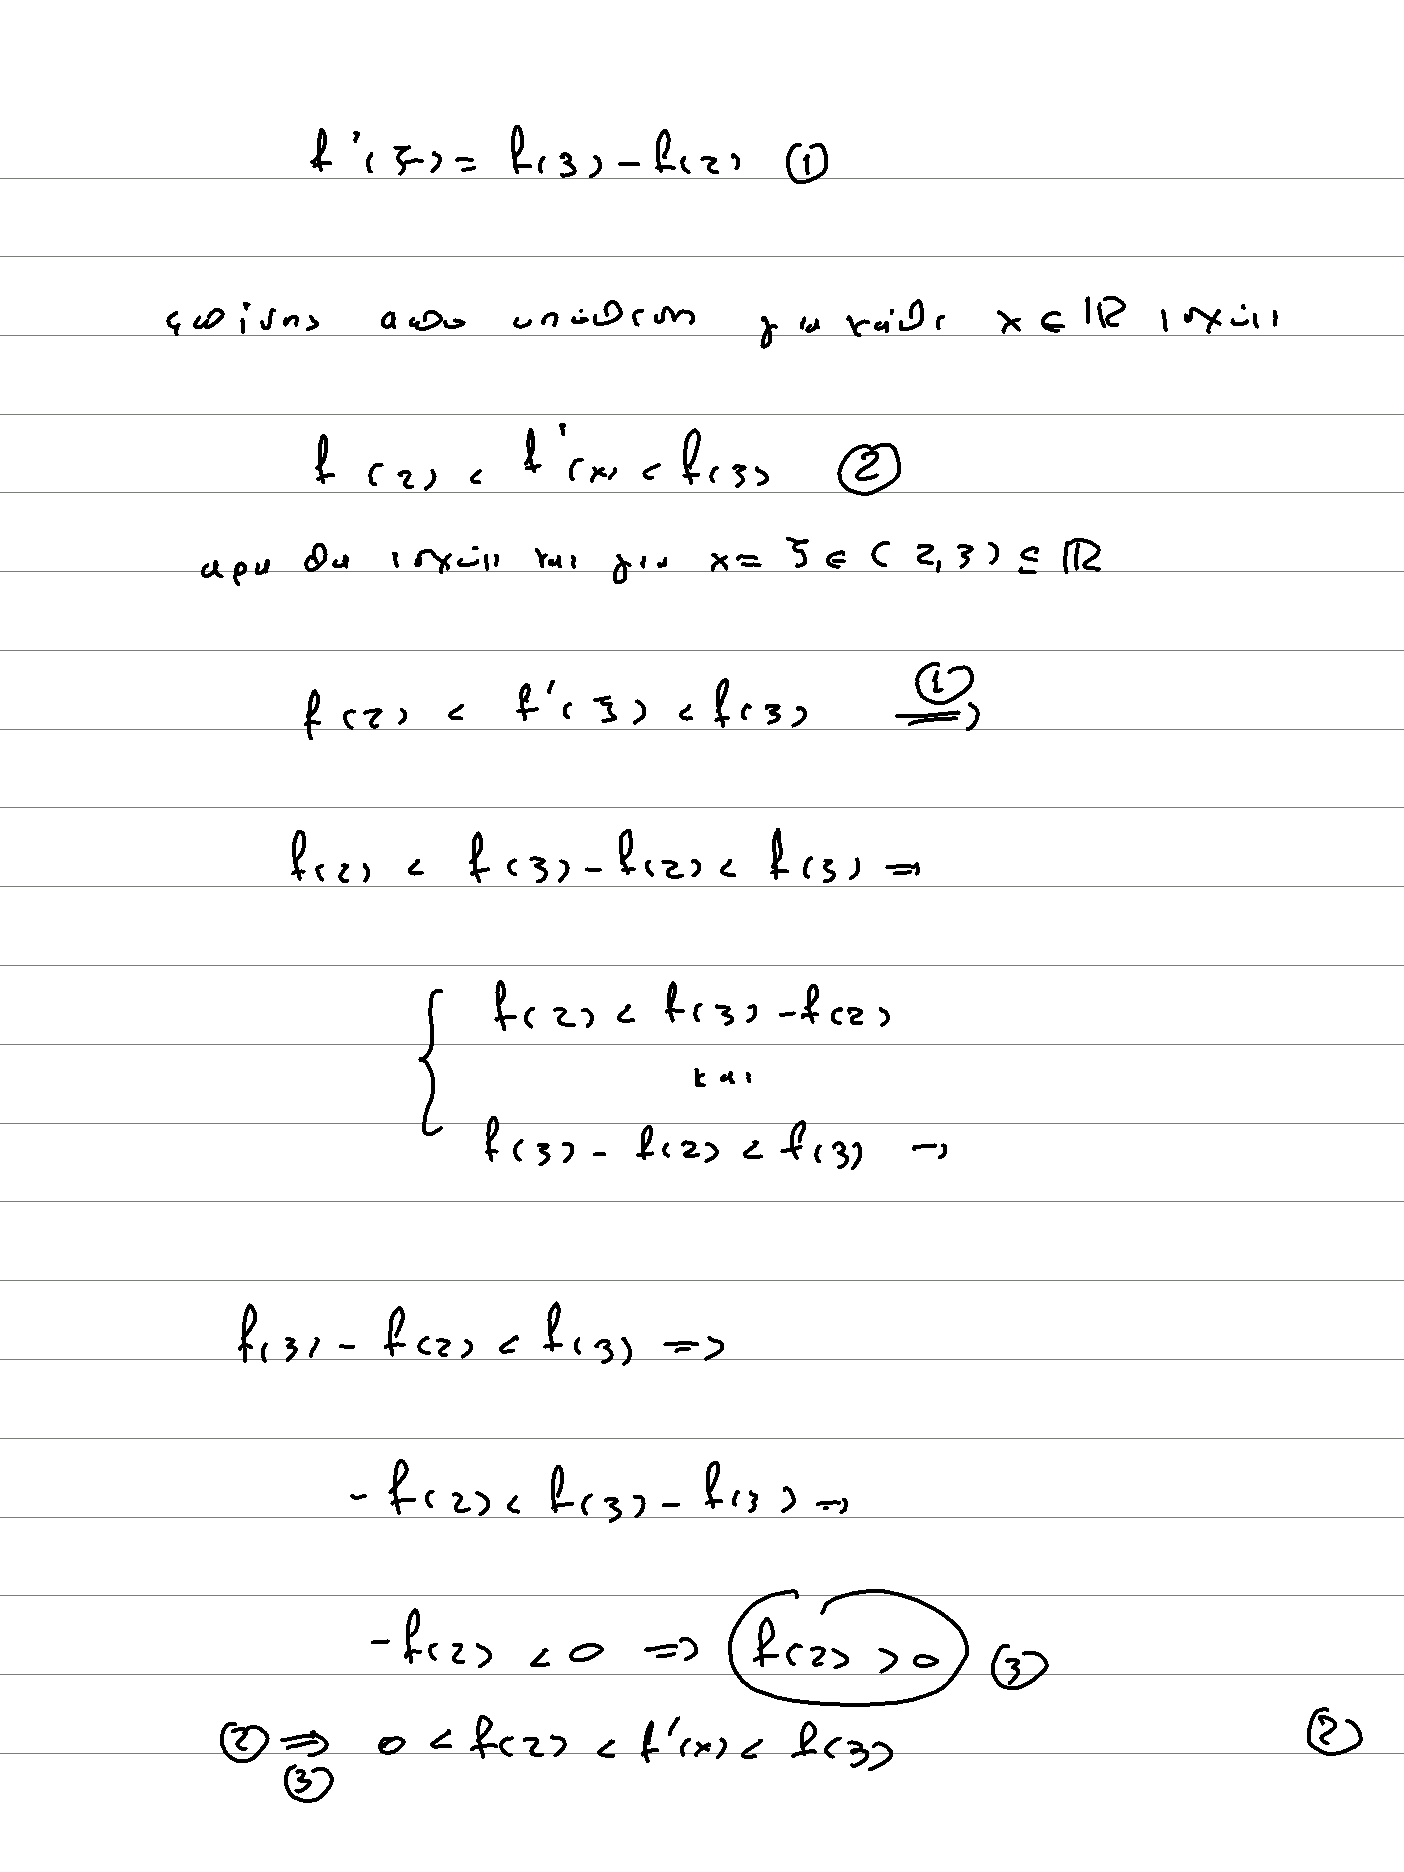 f'(ξ) = f(3) - f(2) ①
επίσης από υπόθεση για κάθε x ∈ ℝ ισχύει
f(2) < f'(x) < f(3) ②
αρα θα ισχύει και για x = ξ ∈ (2,3) ⊆ ℝ
f(2) < f'(ξ) < f(3) ①⟹
f(2) < f(3) - f(2) < f(3) ⇒
{ f(2) < f(3) - f(2)
και
f(3) - f(2) < f(3) →
f(3) - f(2) < f(3) ⇒
- f(2) < f(3) - f(3) ⇒
- f(2) < 0 ⇒ f(2) > 0 ③
② ⇒ ③ 0 < f(2) < f'(x) < f(3) ②